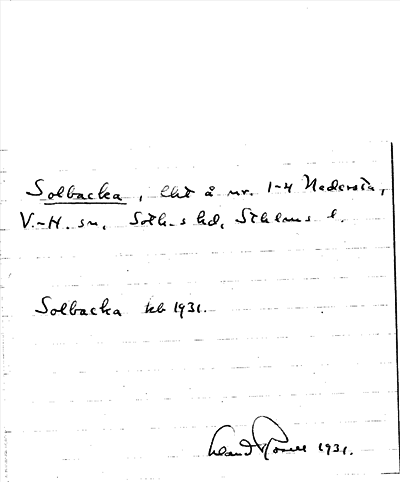 Solbacka, lht å nr. 1-4 Nedersta,
V.-H. sn, Soth-s hd, Sthlms l.
Solbacka kb 1931.
1931.